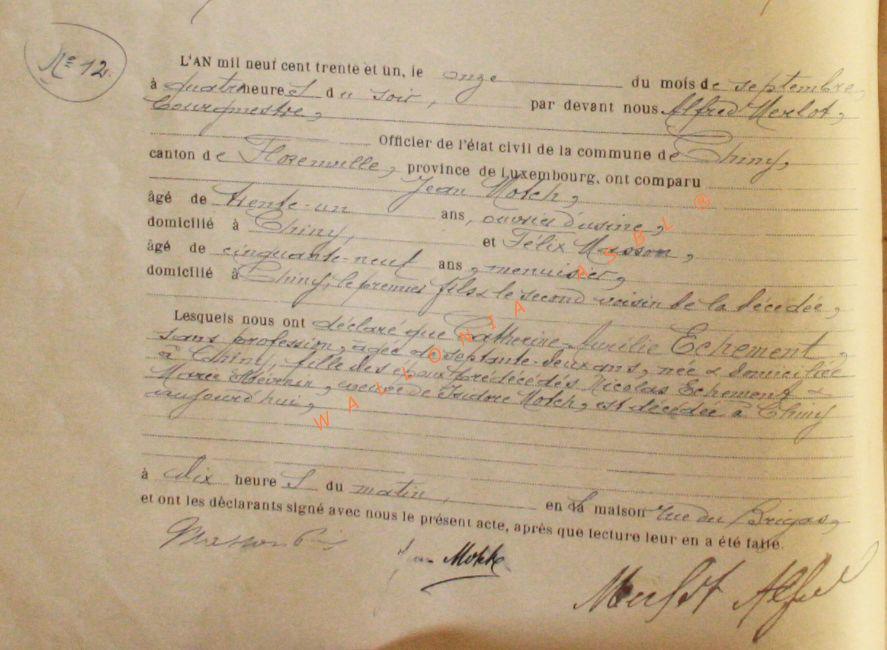 Nº 12.
L'AN mil neuf cent trente et un, le onze du mois de septembre,
à quatre heures du soir, par devant nous Alfred Merlot,
Bourgmestre,
Officier de l'état civil de la commune de Chiny,
canton de Florenville, province de Luxembourg, ont comparu
Jean Motch,
âgé de trente-un ans, ouvrier d'usine,
domicilié à Chiny, et Félix Masson,
âgé de cinquante-neuf ans, menuisier,
domicilié à Chiny, le premier fils & le second voisin de la décédée,
Lesquels nous ont déclaré que Catherine-Aurélie Echement,
sans profession, âgée de septante-deux ans, née & domiciliée
à Chiny, fille des époux prédécédés Nicolas Echement &
Marie, veuve de Isidore Motch, est décédée à Chiny
aujourd'hui,
à dix heures du matin, en la maison rue du
et ont les déclarants signé avec nous le présent acte, après que lecture leur en a été faite.
Masson
Merlot Alfred
WALLONIA ASBL ®